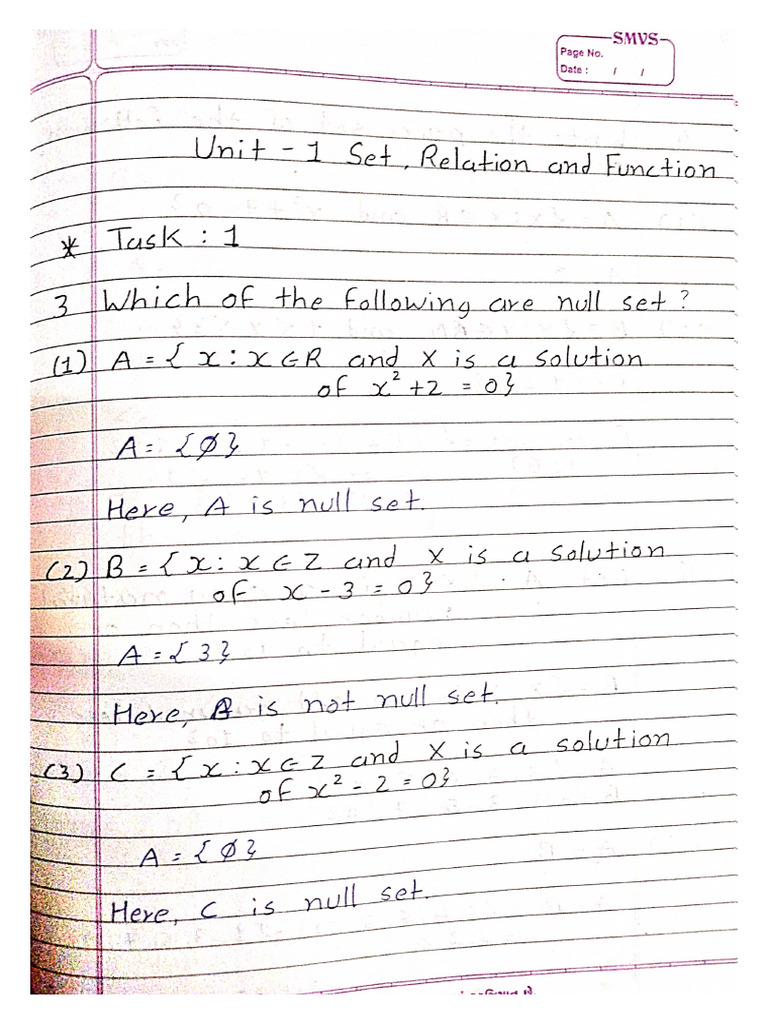 SMVS
Page No.
Date : / /
Unit - 1 Set, Relation and Function
* Task : 1
3 Which of the following are null set ?
(1) A = { x : x ∈ R and x is a solution
of x² + 2 = 0}
A = {∅}
Here, A is null set.
(2) B = { x : x ∈ Z and x is a solution
of x - 3 = 0}
A = { 3 }
Here, B is not null set.
(3) C = { x : x ∈ Z and x is a solution
of x² - 2 = 0}
A = { ∅ }
Here, C is null set.